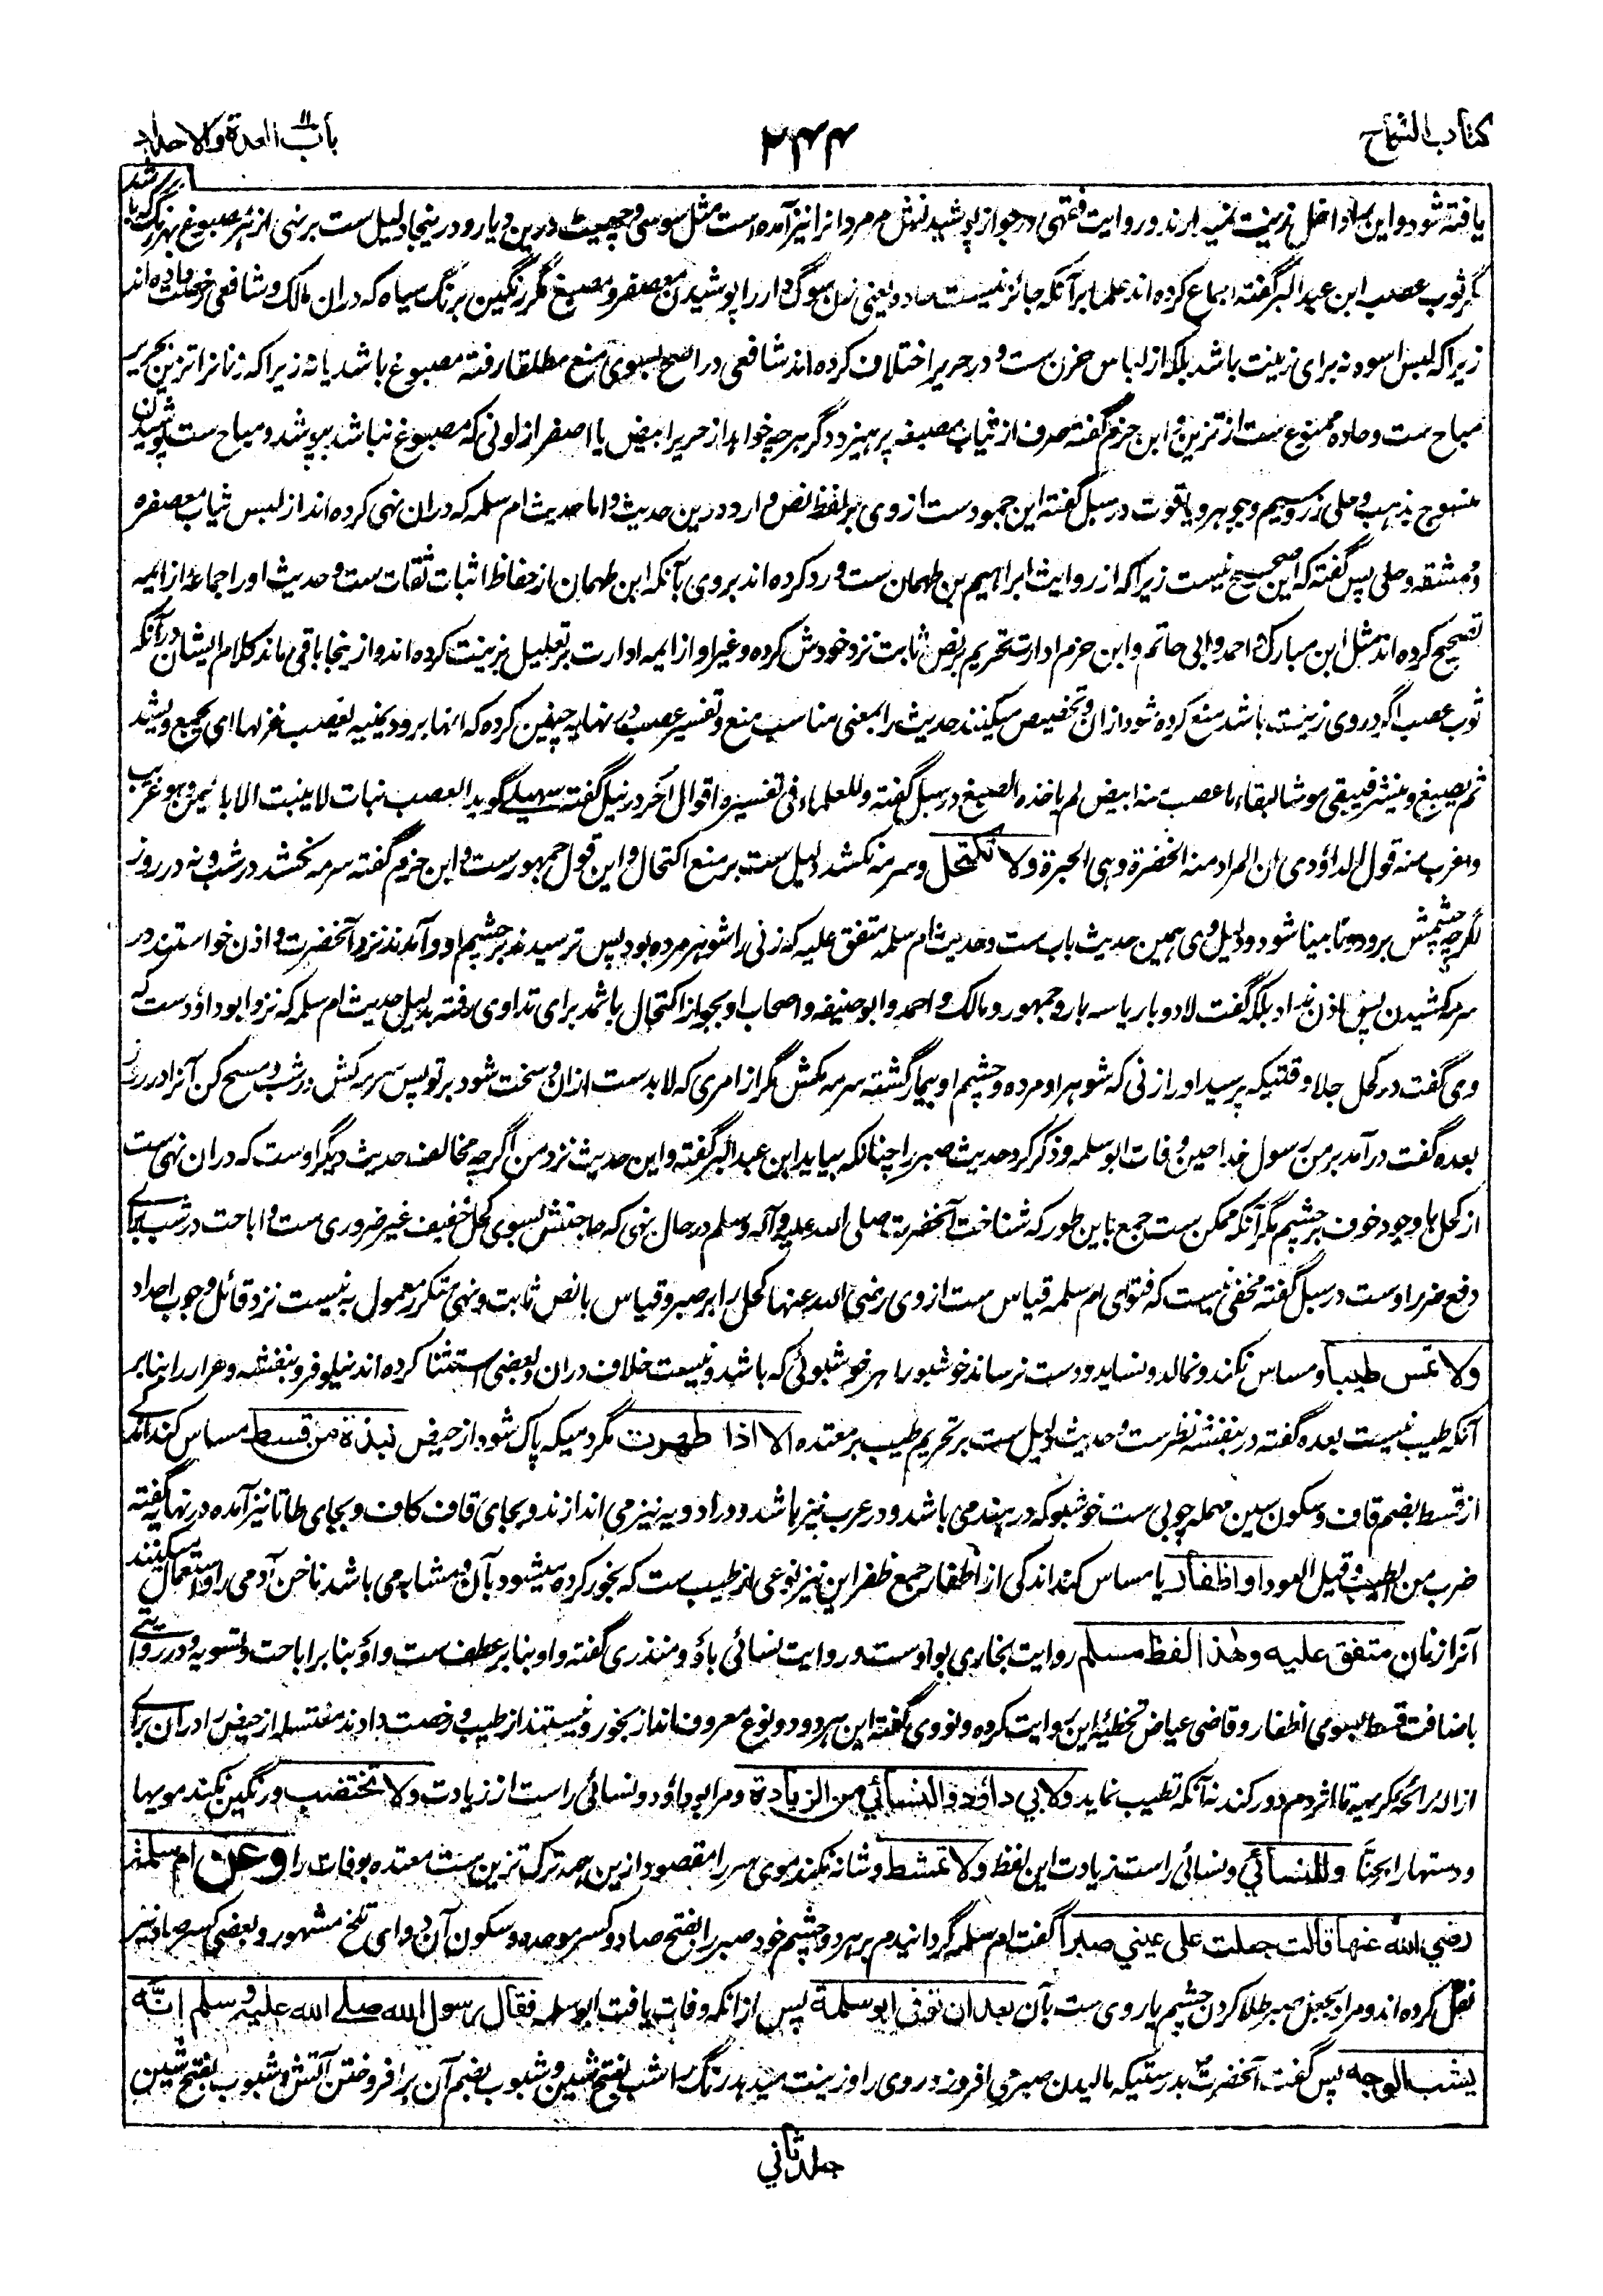 کتاب النکاح
۲۴۴
باب العدة والاحداد
یافته شود و این ... داخل زینت ... و روایت فقهی در جواز پوشیدنش مر مردانرا نیز آمده است مثل سوسی و چھینٹ درین دیار و درینجا دلیل ست بر نهی از هر مصبوغ بهر رنگ که باشد
مگر ثوب عصب ابن عبد البر گفته اجماع کرده اند علما بر آنکه جائز نیست حاده یعنی زن سوگ دار را پوشیدن معصفر و مصبغ مگر رنگین برنگ سیاه که دران مالک و شافعی رخصت داده اند
زیرا که لبس اسود نه برای زینت باشد بلکه از لباس حزن ست و در حریر اختلاف کرده اند شافعی در اصح بسوی منع مطلقا رفته مصبوغ باشد یا نه زیرا که زنانرا تزین بحریر
مباح ست و حاده ممنوع ست از تزین و ابن حزم گفته صرف از ثیاب مصبغه پرهیزد دگر هر چه خواهد از حریر ابیض یا اصفر از لونی که مصبوغ نباشد بپوشد و مباح ست پوشیدن
منسوج بذهب و حلی زر و سیم و جوهر و یاقوت در سبل گفته این جمود ست از وی بر لفظ نص وارد درین حدیث و اما حدیث ام سلمه که دران نهی کرده اند از لبس ثیاب معصفره
و ممشقه و حلی پس گفته که این صحیح نیست زیرا که از روایت ابراهیم بن طهمان ست و رد کرده اند بروی بآنکه ابن طهمان از حفاظ اثبات ثقات ست و حدیث او را جماعه از ایمه
تصحیح کرده اند مثل ابن مبارک و احمد و ابی حاتم و ابن حزم ادارت تحریم بر نص ثابت نزد خودش کرده و غیر او از ایمه ادارت بر تعلیل بزینت کرده اند و از ینجا باقی ماند کلام ایشان در آنکه
ثوب عصب اگر در وی زینت باشد منع کرده شود ازان و تخصیص میکنند حدیث را بمعنی مناسب منع و تفسیر عصب در نهایه چنین کرده که انها برود یمنیه یعصب غزلها ای یجمع و یشد
ثم یصبغ و ینشر فیبقی موشا لبقاء ما عصب منه ابیض لم یاخذه الصبغ در سبل گفته و للعلماء فی تفسیره اقوال اخر در نیل گفته سهیلی گوید العصب نبات لا ینبت الا بالیمن و هو غریب
و اغرب منه قول الداؤدی ان المراد منه الخضرة وهی الحبرة ولا تکتحل و سرمه نکشد دلیل ست بر منع اکتحال و این قول جمهور ست و ابن حزم گفته سرمه نکشد در شب و نه در روز
اگر چه چشمش برود و نابینا شود و دلیل وی همین حدیث باب ست و حدیث ام سلمه متفق علیه که زنی را شوهر مرده بود پس ترسیدند بر چشم او و آمدند نزد آنحضرت و اذن خواستند در
سرمه کشیدن پس اذن نداد بلکه گفت لا دو بار یا سه بار و جمهور و مالک و احمد و ابو حنیفه و اصحاب او بجواز اکتحال باثمد برای تداوی رفته بدلیل حدیث ام سلمه که نزد ابو داؤد ست که
وی گفت در کحل جلا وقتیکه پرسید او را زنی که شوهر او مرده و چشم او بیمار گشته سرمه مکش مگر از امری که لا بد ست ازان و سخت شود بر تو پس سرمه کش در شب و مسح کن آنرا در روز
بعده گفت در آمد بر من رسول خدا حین وفات ابو سلمه و ذکر کرد حدیث صبر را چنانکه بیاید ابن عبد البر گفته و این حدیث نزد من اگر چه مخالف حدیث دیگر اوست که دران نهی ست
از کحل با وجود خوف بر چشم مگر آنکه ممکن ست جمع باین طور که شناخت آنحضرت صلی الله علیه وآله وسلم در حال زنی که حاجتش بسوی کحل خفیف غیر ضروری ست و اباحت در شب برای
دفع ضرر اوست در سبل گفته مخفی نیست که فتوای ام سلمه قیاس ست از وی رضی الله عنها کحل را بر صبر و قیاس با نص ثابت و نهی متکرر معمول به نیست نزد قائل وجوب احداد
ولا تمس طیبا و مساس نکند و نمالد و نساید و دست نرساند خوشبو را هر خوشبوئی که باشد و نیست خلاف دران و بعضی استثنا کرده اند نیلوفر و بنفشه و عرار را بنابر
آنکه طیب نیست بعده گفته در بنفشه نظر ست و حدیث دلیل ست بر تحریم طیب بر معتده الا اذا طهرت مگر دمیکه پاک شود از حیض نبذة من قسط مساس کند اندکی
از قسط بضم قاف و سکون سین مهمله چوبی ست خوشبو که در هند می باشد و در عرب نیز باشد و در ادویه نیز می اندازند و بجای قاف کاف و بجای طا تا نیز آمده در نهایه گفته
ضرب من الطیب و قیل العود او اظفار یا مساس کند اندکی از اظفار جمع ظفر این نیز نوعی از طیب ست که بخور کرده میشود بآن و مشابه می باشد ناخن آدمی را و استعمال میکنند
آنرا زنان متفق علیه وهذا لفظ مسلم روایت بخاری بواو ست و روایت نسائی باؤ و منذری گفته واو بنا بر عطف ست و اؤ بنا بر اباحت و تسویه و در روایتی
باضافت قسط بسوی اظفار و قاضی عیاض تخطئه این روایت کرده و نووی گفته این هر دو دو نوع معروف اند از بخور و نیستند از طیب و رخصت دادند مغتسله از حیض را دران برای
ازاله رائحه کریهه تا اثر دم دور کند نه آنکه تطیب نماید ولابی داؤد والنسائی من الزیادة و مر ابو داؤد و نسائی راست از زیادت ولا تختضب و رنگین نکند مویها
و دستها را بحنا وللنسائی و نسائی راست زیادت این لفظ ولا تمتشط و شانه نکند موی سر را مقصود ازین همه ترک تزین ست معتده بوفات را وعن ام سلمة
رضی الله عنها قالت جعلت علی عینی صبرا گفت ام سلمه گردانیدم بر هر دو چشم خود صبر را بفتح صاد و کسر موحده و سکون آن دوای تلخ مشهور و بعضی کسر صاد نیز
نقل کرده اند و مراد بجعل صبر طلا کردن چشم یا روی ست بآن بعد ان توفی ابو سلمة پس ازانکه وفات یافت ابو سلمه فقال رسول الله صلی الله علیه وسلم انه
یشب الوجه پس گفت آنحضرت بدرستیکه مالیدن صبر می افروزد روی را و زینت میدهد رنگ را شب بفتح شین و شبوب بضم آن بر افروختن آتش و شبوب بفتح شین
جلد ثانی